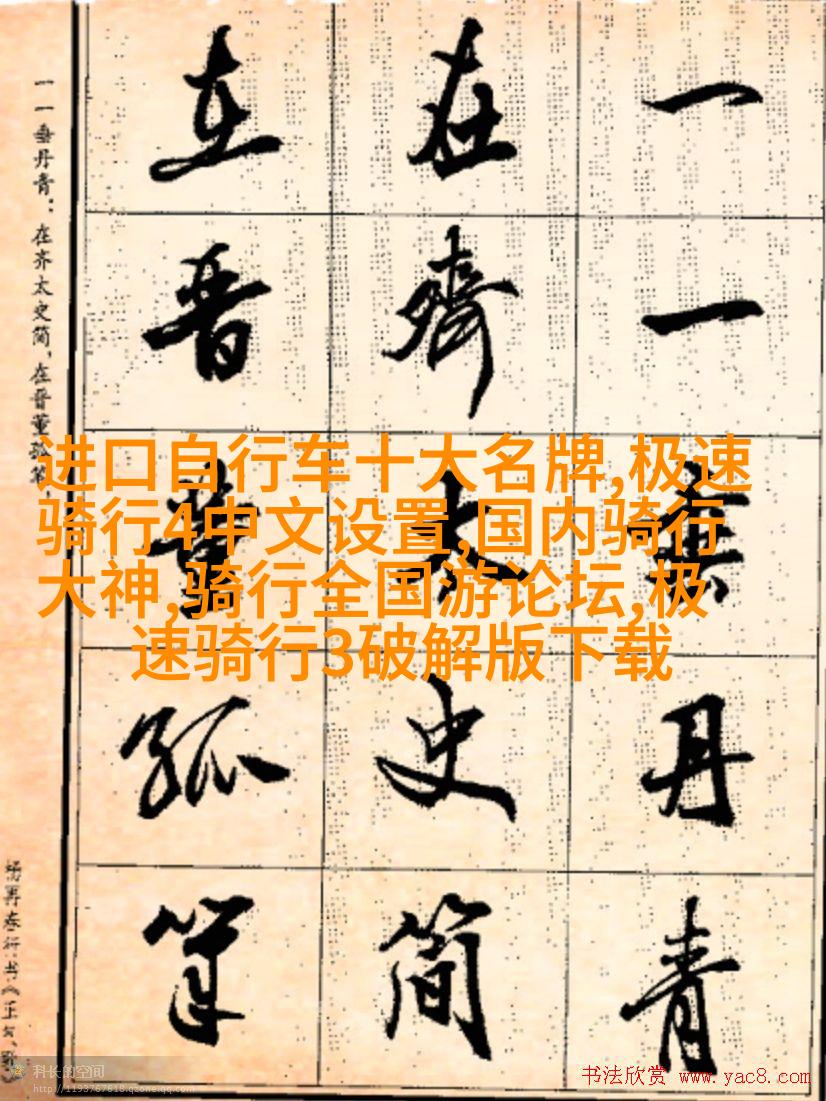 一一垂丹青
在齊太史简
在晋董狐筆
一一垂丹青：在齐太史简，在晋董狐笔，
进口自行车十大名牌,极速
骑行4中文设置,国内骑行
大神,骑行全国游论坛,极
速骑行3破解版下载
科长的空间
书法欣赏 www.yac8.com